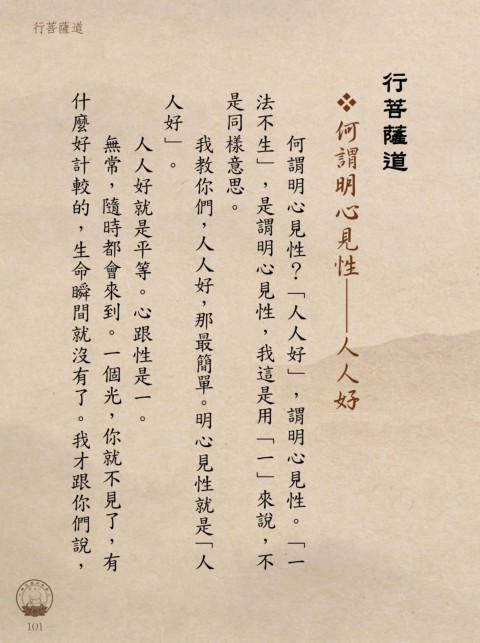 行菩薩道
行菩薩道
❖何謂明心見性——人人好
何謂明心見性？「人人好」，謂明心見性。「一
法不生」，是謂明心見性，我這是用「一」來說，不
是同樣意思。
我教你們，人人好，那最簡單。明心見性就是「人
人好」。
人人好就是平等。心跟性是一。
無常，隨時都會來到。一個光，你就不見了，有
什麼好計較的，生命瞬間就沒有了。我才跟你們說，
101